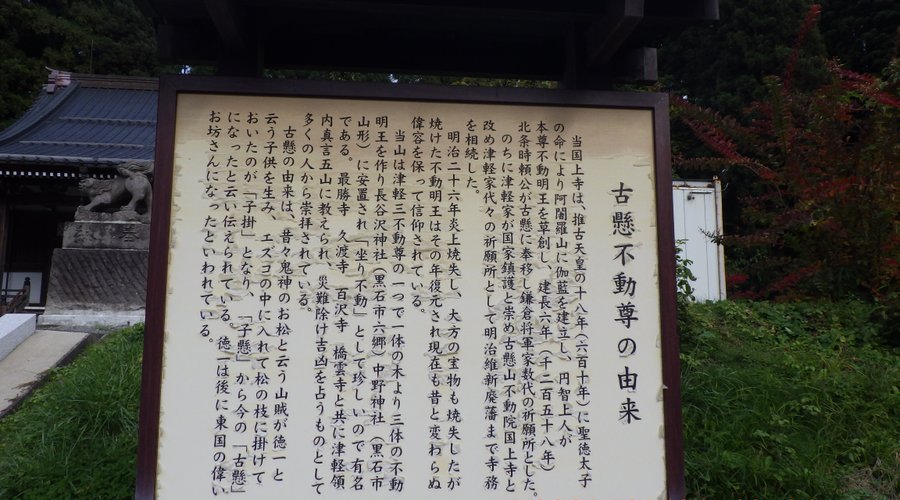 古懸不動尊の由来
当国上寺は、推古天皇の十八年（六百十年）に聖徳太子
の命により阿闍羅山に伽藍を建立し、円智上人が
本尊不動明王を草創し、建長六年（千二百五十八年）
北条時頼公が古懸に奉移し鎌倉将軍家数代の祈願所とした。
のちに津軽家が国家鎮護と崇め古懸山不動院国上寺と
改め津軽家代々の祈願所として明治維新廃藩まで寺務
を相続した。
明治二十六年炎上焼失し、大方の宝物も焼失したが
焼けた不動明王はその年復元され現在も昔と変わらぬ
偉容を保って信仰されている。
当山は津軽三不動尊の一つで一体の木より三体の不動
明王を作り長谷沢神社（黒石市六郷）中野神社（黒石市
山形）に安置され「坐り不動」として珍しいので有名
である。最勝寺　久渡寺　百沢寺　橋雲寺と共に津軽領
内真言五山に教えられ、災難除け吉凶を占うものとして
多くの人から崇拝されている。
古懸の由来は、昔々鬼神のお松と云う山賊が徳一と
云う子供を生み、エズコの中に入れて松の枝に掛けて
おいたのが「子掛」となり、「子懸」から今の「古懸」
になったと云い伝えられている。徳一は後に東国の偉い
お坊さんになったといわれている。